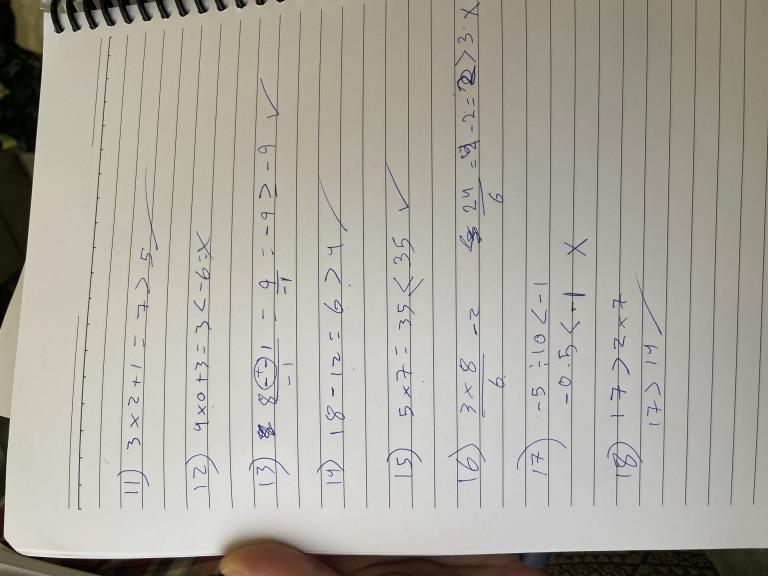 11) 3 x 2 + 1 = 7 > 5 ✓
12) 4 x 0 + 3 = 3 < -6 = X
13) 8 - - 1 / -1 = 9 / -1 = -9 ≥ -9 ✓
14) 18 - 12 = 6 > 4 ✓
15) 5 x 7 = 35 ≤ 35 ✓
16) 3 x 8 / 6 - 2 24 / 6 = 4 - 2 = 2 > 3 X
17) -5 ÷ 10 < -1
-0.5 < -1 X
18) 17 > 2 x 7
17 > 14 ✓